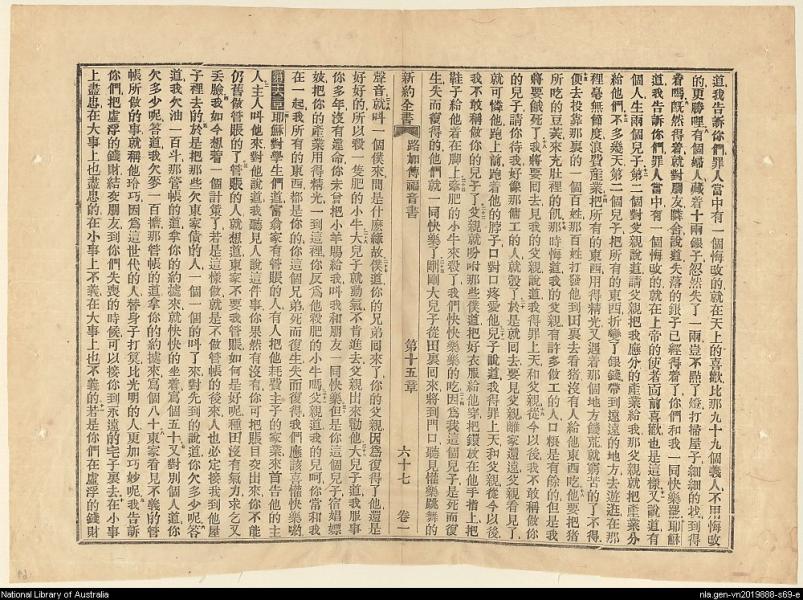 道我告訴你們罪人當中有一個悔改的就在天上的喜歡比那九十九個義人不用悔改
的更勝哩有個婦人藏着十兩銀子忽然失了一兩豈不㸃了燈打掃屋子細細的找到得
着嗎既然得着就對朋友隣舍說道失落的銀子已經得着了你們和我一同快樂罷耶穌
道我告訴你們罪人當中有一個悔改的就在上帝的使者面前喜歡也是這樣又說道有
個人生兩個兒子第二個對父親說道請父親把我應分的產業給我那父親就把產業分
給他們不多幾天第二個兒子把所有的東西折變了銀錢帶到遠遠的地方去遊逛在那
裡毫無節度浪費產業把所有的東西用得精光又遇着那個地方饑荒就窮苦的了不得
便去投靠那裏的一個百姓那百姓打發他到田裏去看猪沒有人給他東西吃他要把猪
所吃的豆莢來充肚裡的飢那時悔道我的父親有許多傭工的人口糧是有餘的但是我
將要餓死了我將要回去見我的父親說道我得罪上天和父親從今以後我不敢稱做你
的兒子請你待我好像那傭工的人就彀了於是就回去要見父親離家還遠父親看見了
就可憐他跑上前抱着他的脖子口對口疼愛他兒子說道我得罪上天和父親從今以後
我不敢稱做你的兒子了父親就吩咐那些僕道把好衣服給他穿把鐶放在他手指上把
鞋子給他着在腳上牽肥的小牛來殺了我們快快樂樂的吃因爲我這個兒子是死而復
生失而復得的他們就一同快樂了剛剛大兒子從田裏回來將到門口聽見懽樂跳舞的
新約全書 路加傳福音書 第十五章 六十七 卷一
聲音就叫一個僕來問是什麼緣故僕道你的兄弟回來了你的父親因爲復得了他還是
好好的所以殺一隻肥的小牛大兒子就動氣不肯進去父親出來勸他大兒子道我服事
你多年沒有違命你未曾把小羊賜給我叫我和朋友一同快樂但是你這個兒子宿娼嫖
妓把你的產業用得精光一到這裡你反爲他殺肥的小牛嗎父親道我的兒呵你常和我
在一起我所有的東西都是你的你這個兄弟死而復生失而復得我們應該喜懽快樂喲
第十六章耶穌對學生們道當富翁家有管賬的人有人把他耗費主子的家業來首告他的主
人主人叫他來對他說道我聽見人說這件事你果然有沒有你可把賬目交出來你不能
仍舊做管賬的了管賬的人就想道東家不要我管賬如何是好呢種田沒有氣力求乞又
丟臉我如今想着一個計策了若是這樣做就是不做管帳的後來人也必定接我到他屋
子裡去的於是把那些欠東家債的人一個一個的叫了來對先到的說道你欠多少呢答
道我欠油一百斗那管帳的道拿你的約據來就快快的坐着寫個五十又對別個人道你
欠多少呢答道我欠麥一百擔那管帳的道拿你的約據來寫個八十東家看見不義的管
帳所做的事就稱他給巧因爲這世代的人替身子打算比光明的人更加巧妙呢我告訴
你們把虛浮的錢財結交朋友到你們失喪的時候可以接你到永遠的宅子裏去在小事
上盡忠在大事上也盡忠的在小事上不義在大事上也不義的若是你們在虛浮的錢財
National Library of Australia
nla.gen-vn2019888-s69-e